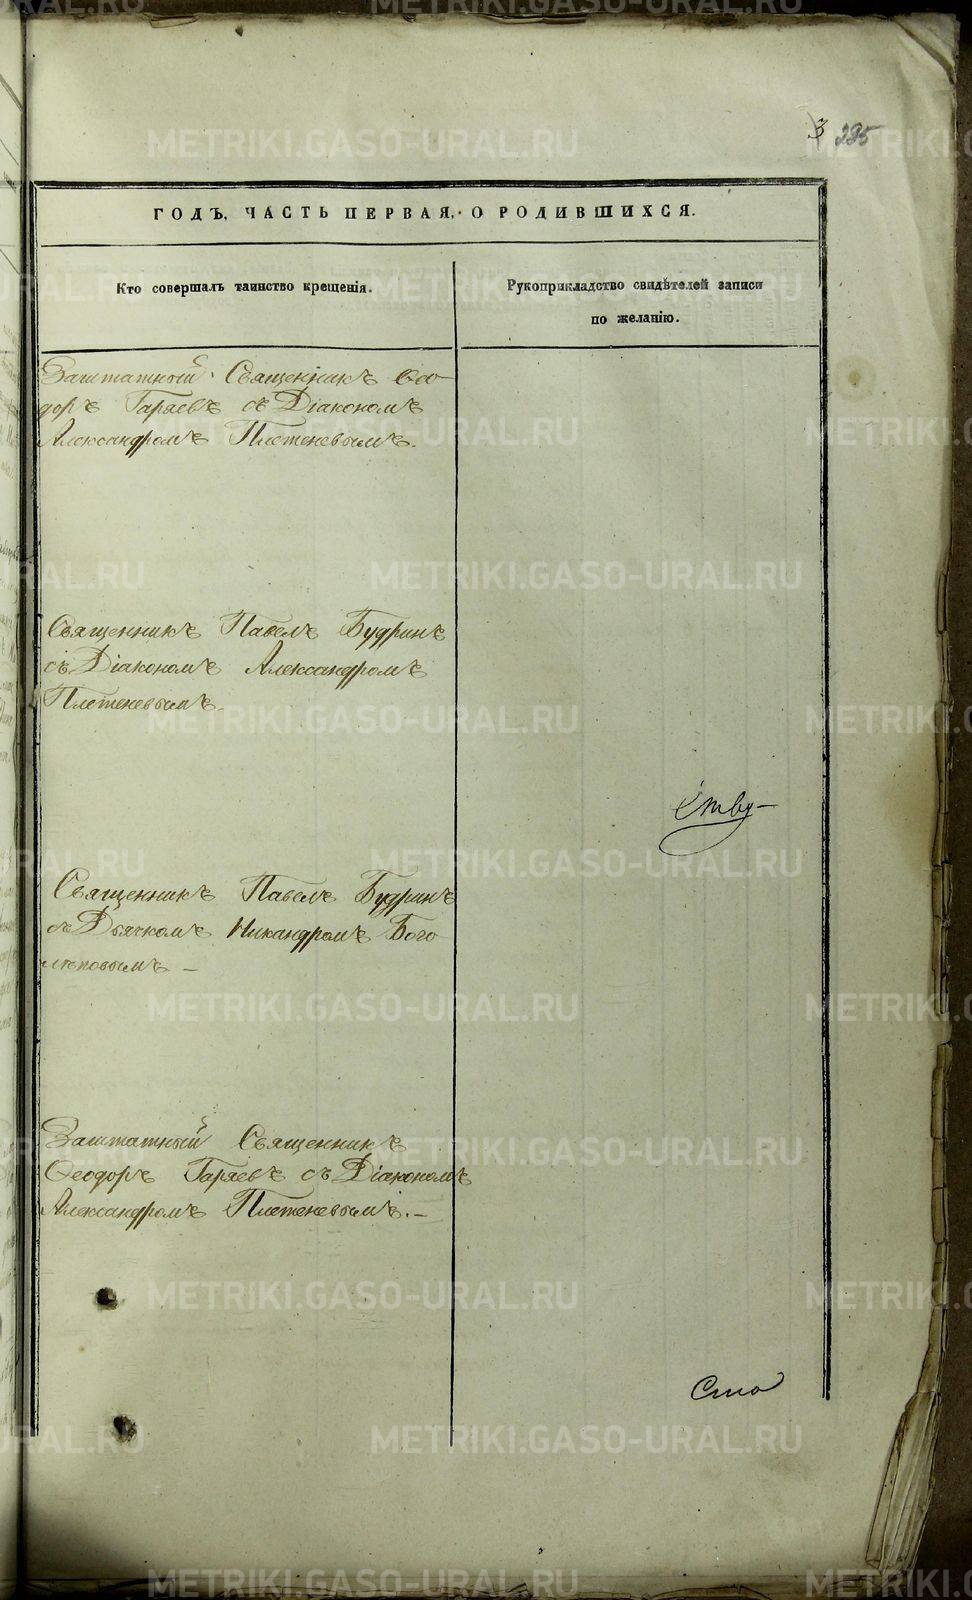 3 295
ГОДЪ, ЧАСТЬ ПЕРВАЯ, О РОДИВШИХСЯ.
Кто совершалъ таинство крещенія.
Рукоприкладство свидѣтелей записи
по желанію.
Заштатный Священникъ Ѳео-
доръ Гаряевъ съ Діакономъ
Александромъ Плетеневымъ.
Священникъ Павелъ Будринъ
съ Діакономъ Александромъ
Плетеневымъ.
Священникъ Павелъ Будринъ
съ Дьячкомъ Никандромъ Бого
лѣповымъ –
Заштатный Священникъ
Ѳеодоръ Гаряевъ съ Діакономъ
Александромъ Плетеневымъ. –
ству–
Сто
METRIKI.GASO-URAL.RU